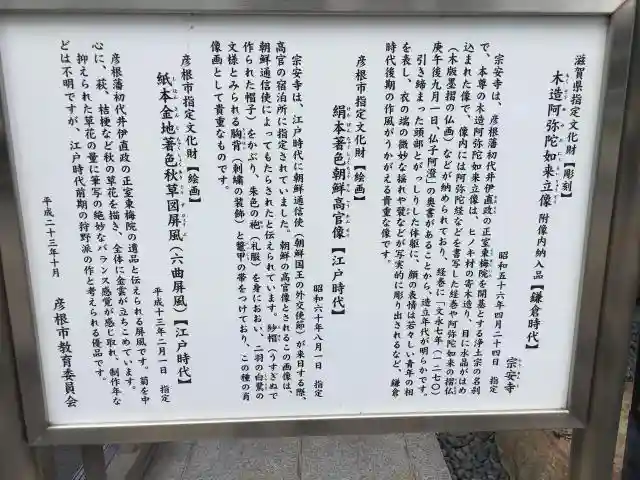 滋賀県指定文化財【彫刻】
木造阿弥陀如来立像 附像内納入品【鎌倉時代】
宗安寺
昭和五十六年四月二十四日 指定
宗安寺は、彦根藩初代井伊直政の正室東梅院を開基とする浄土宗の名刹
で、本尊の木造阿弥陀如来立像は、ヒノキ材の寄木造り、目に水晶がはめ
込まれた像で、像内には阿弥陀経などを書写した経巻や阿弥陀如来の摺仏
(木版墨摺の仏画)などが納められており、経巻に「文永七年(一二七〇)
庚午後九月一日、仏子阿澄」の奥書があることから、造立年代が明らかです。
引き締まった頭部とがっしりした体躯に、顔の表情は若々しい青年の相
を表し、衣の端の微妙な揺れや襞などが写実的に彫り出されるなど、鎌倉
時代後期の作風がうかがえる貴重な像です。
彦根市指定文化財【絵画】
絹本著色朝鮮高官像【江戸時代】
昭和六十年八月一日 指定
宗安寺は、江戸時代に朝鮮通信使(朝鮮国王の外交使節)が来日する際、
高官の宿泊所に指定されていました。朝鮮の高官像とされるこの画像は、
朝鮮通信使によってもたらされたと伝えられています。紗帽(うすぎぬで
作られた帽子)をかぶり、朱色の袍(礼服)を身におおい、二羽の白鷺の
文様とみられる胸背(刺繍の装飾)と鼈甲の帯をつけており、この種の肖
像画として貴重なものです。
彦根市指定文化財【絵画】
紙本金地著色秋草図屏風(六曲屏風)【江戸時代】
平成十三年二月一日 指定
彦根藩初代井伊直政の正室東梅院の遺品と伝えられる屏風です。菊を中
心に、萩、桔梗など秋の草花を描き、全体に金雲が立ちこめています。
抑えられた草花の量に筆写の絶妙なバランス感覚が感じ取れ、制作年な
どは不明ですが、江戸時代前期の狩野派の作と考えられる優品です。
平成二十三年十月
彦根市教育委員会